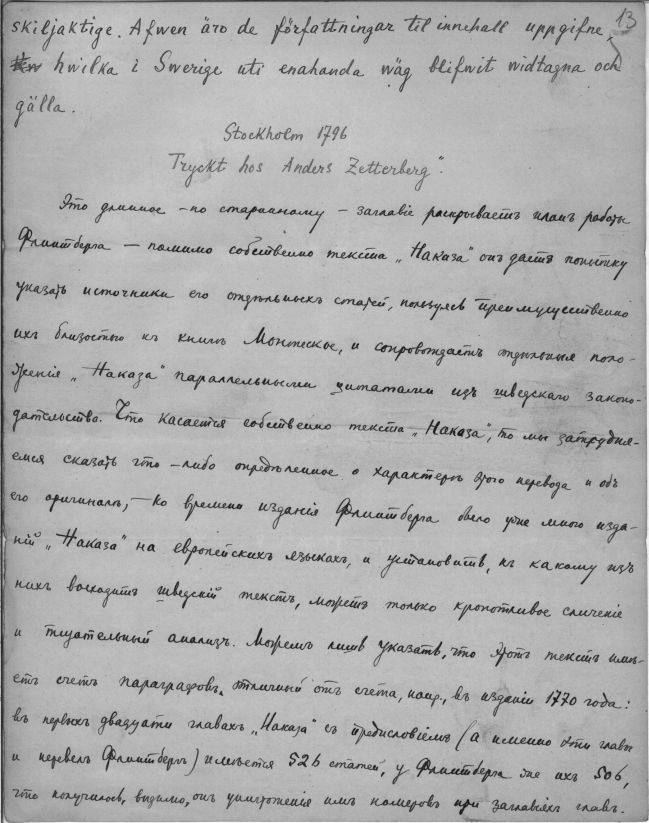 13
skiljaktige. Afwen äro de författningar til innehall uppgifne,
hwilka i Swerige uti enahanda wäg blifwit widtagna och
gälla.
Stockholm 1796
Tryckt hos Anders Zetterberg".
Это длинное – по старинному – заглавiе раскрываетъ планъ работы
Флинтберга – помимо собственно текста „Наказа" онъ даетъ попытку
указать источники его отдѣльныхъ статей, пользуясь преимущественно
ихъ близостью къ книгѣ Монтескье, и сопровождаетъ отдѣльныя поло-
женiя „Наказа" параллельными цитатами изъ шведскаго законо-
дательства. Что касается собственно текста „Наказа", то мы затрудня-
емся сказать что-либо опредѣленное о характерѣ этого перевода и объ
его оригиналѣ, – ко времени изданiя Флинтберга было уже много изда-
нiй „Наказа" на европейскихъ языкахъ, и установить, къ какому изъ
нихъ восходитъ шведскiй текстъ, можетъ только кропотливое сличенiе
и тщательный анализъ. Можемъ лишь указать, что этотъ текстъ имѣ-
етъ счетъ параграфовъ, отличный отъ счета, напр., въ изданiи 1770 года:
въ первыхъ двадцати главахъ „Наказа" съ предисловiемъ (а именно эти главы
и перевелъ Флинтбергъ) имѣется 526 статей, у Флинтберга же ихъ 506,
что получилось, видимо, отъ уничтоженiя имъ номеровъ при заглавiяхъ главъ.